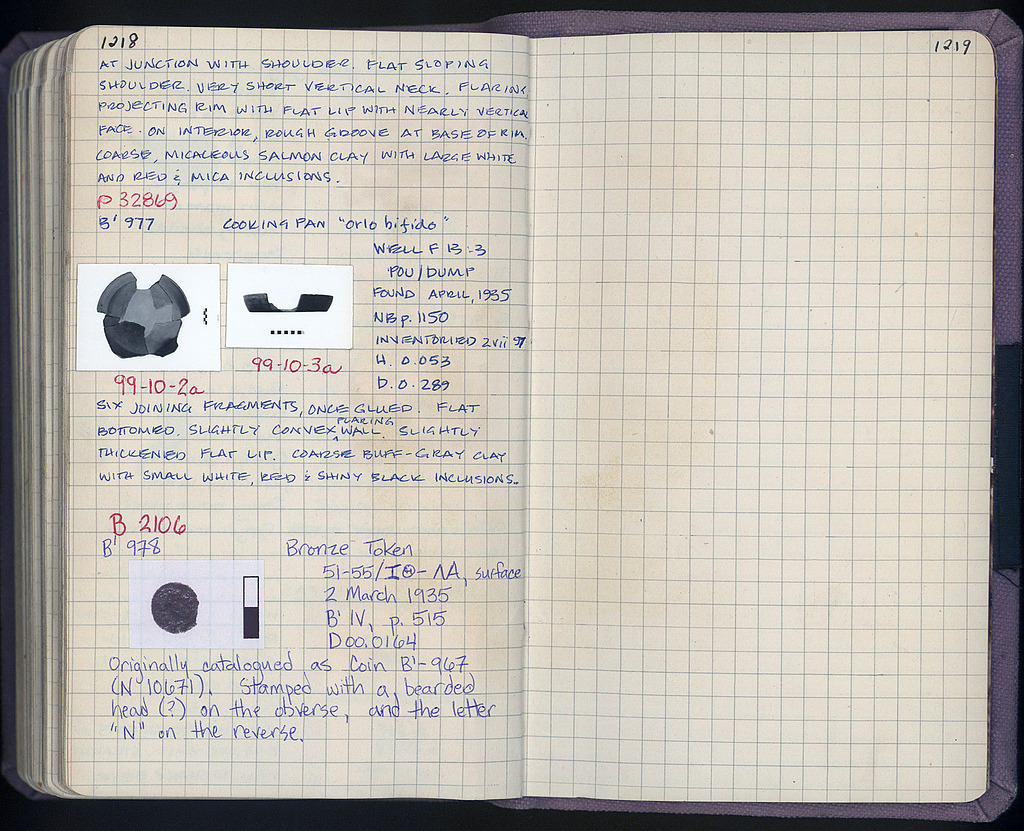 1218
AT JUNCTION WITH SHOULDER. FLAT SLOPING
SHOULDER. VERY SHORT VERTICAL NECK. FLARING
PROJECTING RIM WITH FLAT LIP WITH NEARLY VERTICAL
FACE. ON INTERIOR, ROUGH GROOVE AT BASE OF RIM.
COARSE, MICACEOUS SALMON CLAY WITH LARGE WHITE
AND RED & MICA INCLUSIONS.
P 32869
B' 977 COOKING PAN "orlo bifido"
WELL F 13:3
POU/DUMP
FOUND APRIL, 1935
NB p. 1150
INVENTORIED 2 vii 97
H. 0.053
D. 0.289
99-10-2a
99-10-3a
SIX JOINING FRAGMENTS, ONCE GLUED. FLAT
BOTTOMED. SLIGHTLY CONVEX FLARING WALL. SLIGHTLY
THICKENED FLAT LIP. COARSE BUFF-GRAY CLAY
WITH SMALL WHITE, RED & SHINY BLACK INCLUSIONS.
B 2106
B' 978 Bronze Token
51-55/ΙΘ-ΛΑ, surface
2 March 1935
B' IV, p. 515
D 00.0164
Originally catalogued as Coin B'-967
(N 10671). Stamped with a bearded
head (?) on the obverse, and the letter
"N" on the reverse.
1219